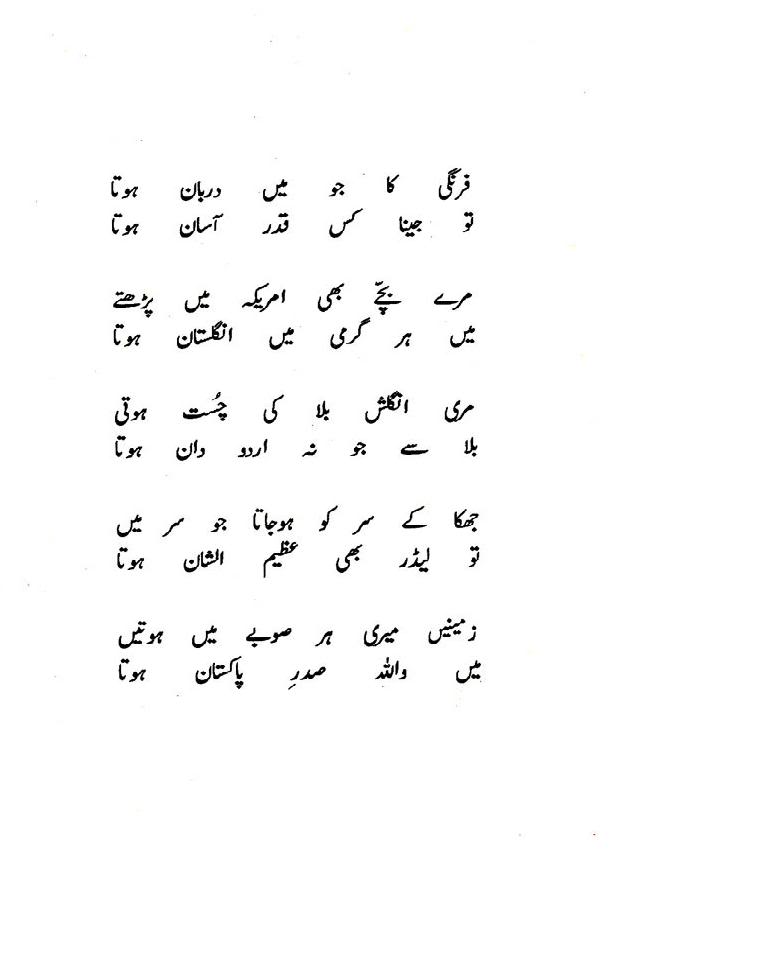 فرنگی کا جو میں دربان ہوتا
تو جینا کس قدر آسان ہوتا
مرے بچّے بھی امریکہ میں پڑھتے
میں ہر گرمی میں انگلستان ہوتا
مری انگلش بلا کی چُست ہوتی
بلا سے جو نہ اردو دان ہوتا
جھکا کے سر کو ہوجاتا جو سر میں
تو لیڈر بھی عظیم الشان ہوتا
زمینیں میری ہر صوبے میں ہوتیں
میں واللہ صدرِ پاکستان ہوتا